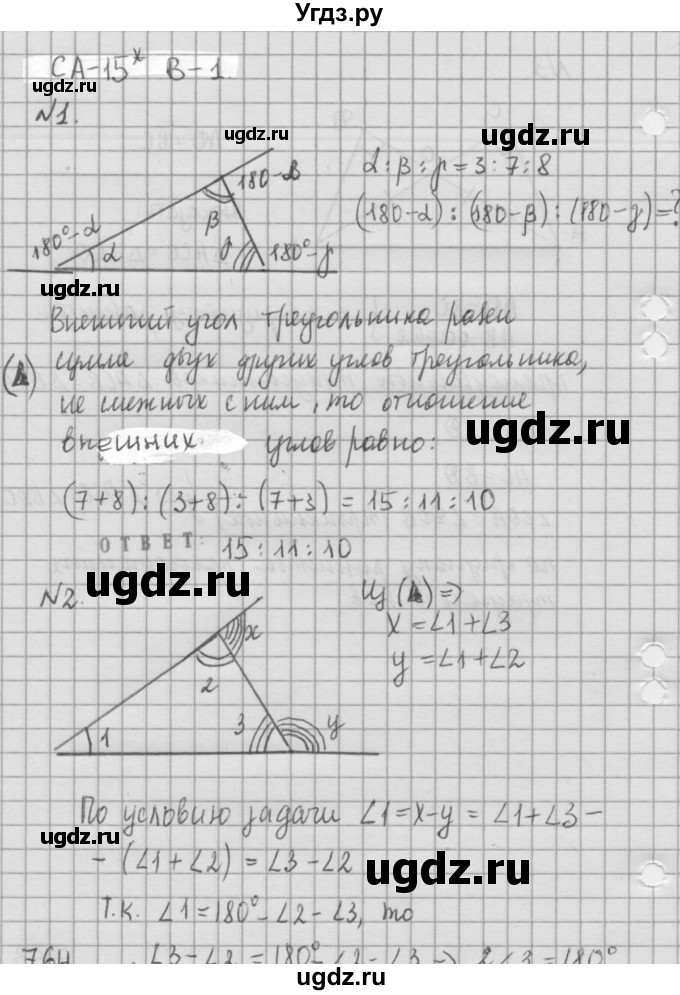 Угдз.ру
СА-15* В-1.
udgz.ru
№1.
ugdz.ru
ugdz.ru
180-β
α : β : γ = 3 : 7 : 8
180°-α
α
β
γ
180°-γ
(180-α) : (180-β) : (180-γ) = ?
ugdz.ru
Внешний угол треугольника равен
сумме двух других углов треугольника,
не смежных с ним, то отношение
ugdz.ru
внешних углов равно:
(7+8) : (3+8) : (7+3) = 15 : 11 : 10
ОТВЕТ: 15 : 11 : 10
ugdz.ru
№2.
Из (▲) =>
x
x = ∠1+∠3
y = ∠1+∠2
2
1
3
y
ugdz.ru
По условию задачи ∠1 = x-y = ∠1+∠3 -
ugdz.ru
- (∠1+∠2) = ∠3-∠2
ugdz.ru
Т.к. ∠1 = 180°-∠2-∠3, то
∠3-∠2 = 180°-∠2-∠3 => 2∠3 = 180°
ugdz.ru